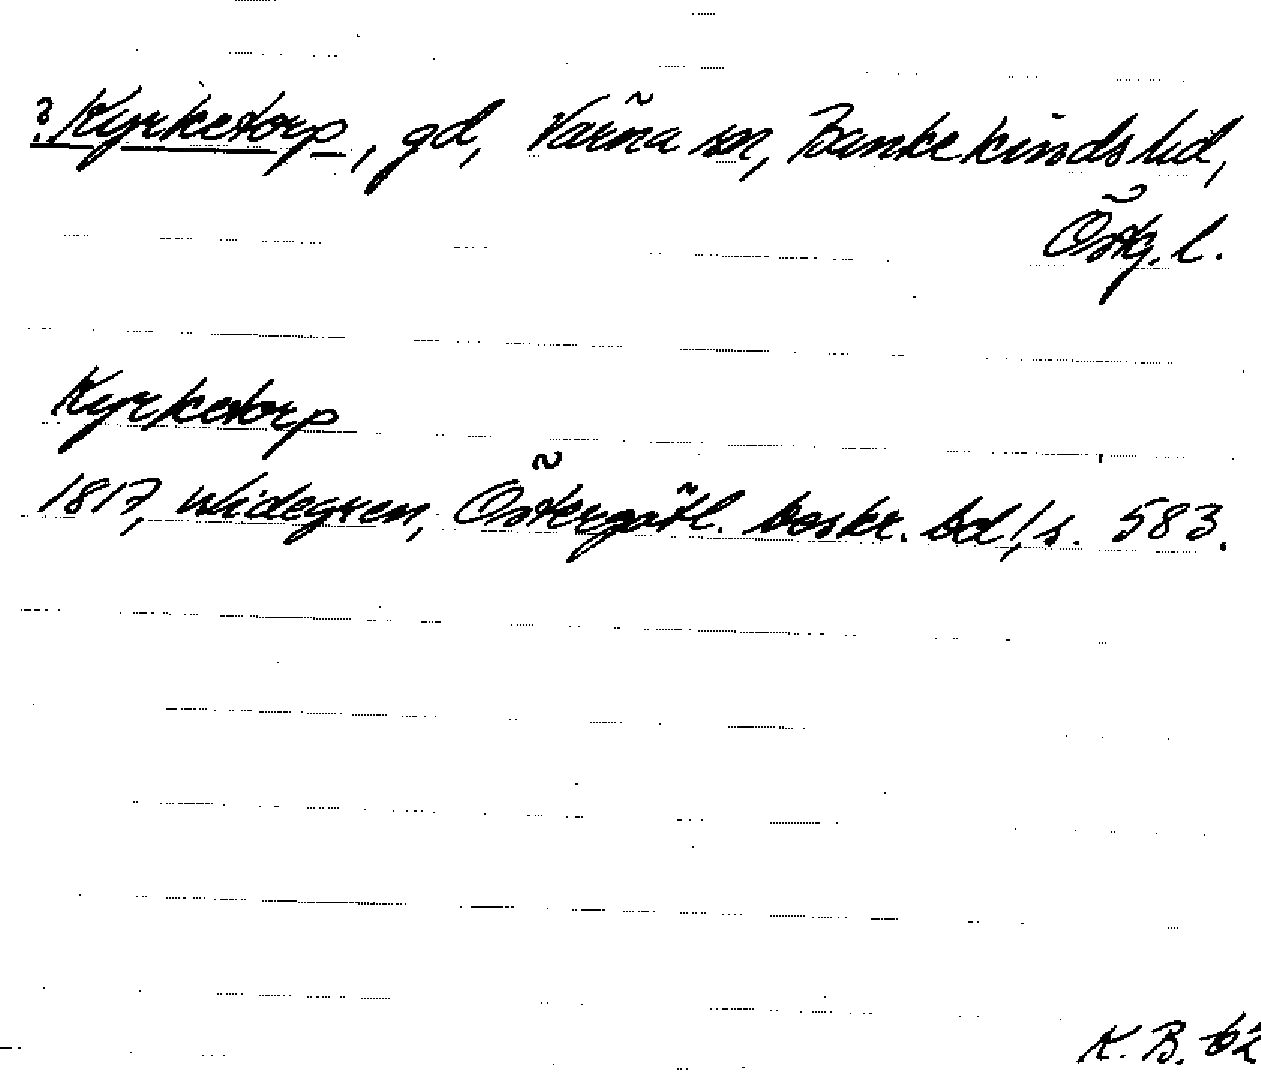 ? Kyrketorp, gd, Värna sn, Bankekinds hd,
Östg. l.
Kyrketorp
1817, Widegren, Östergötl. beskr. bd 1, s. 583.
K. B.